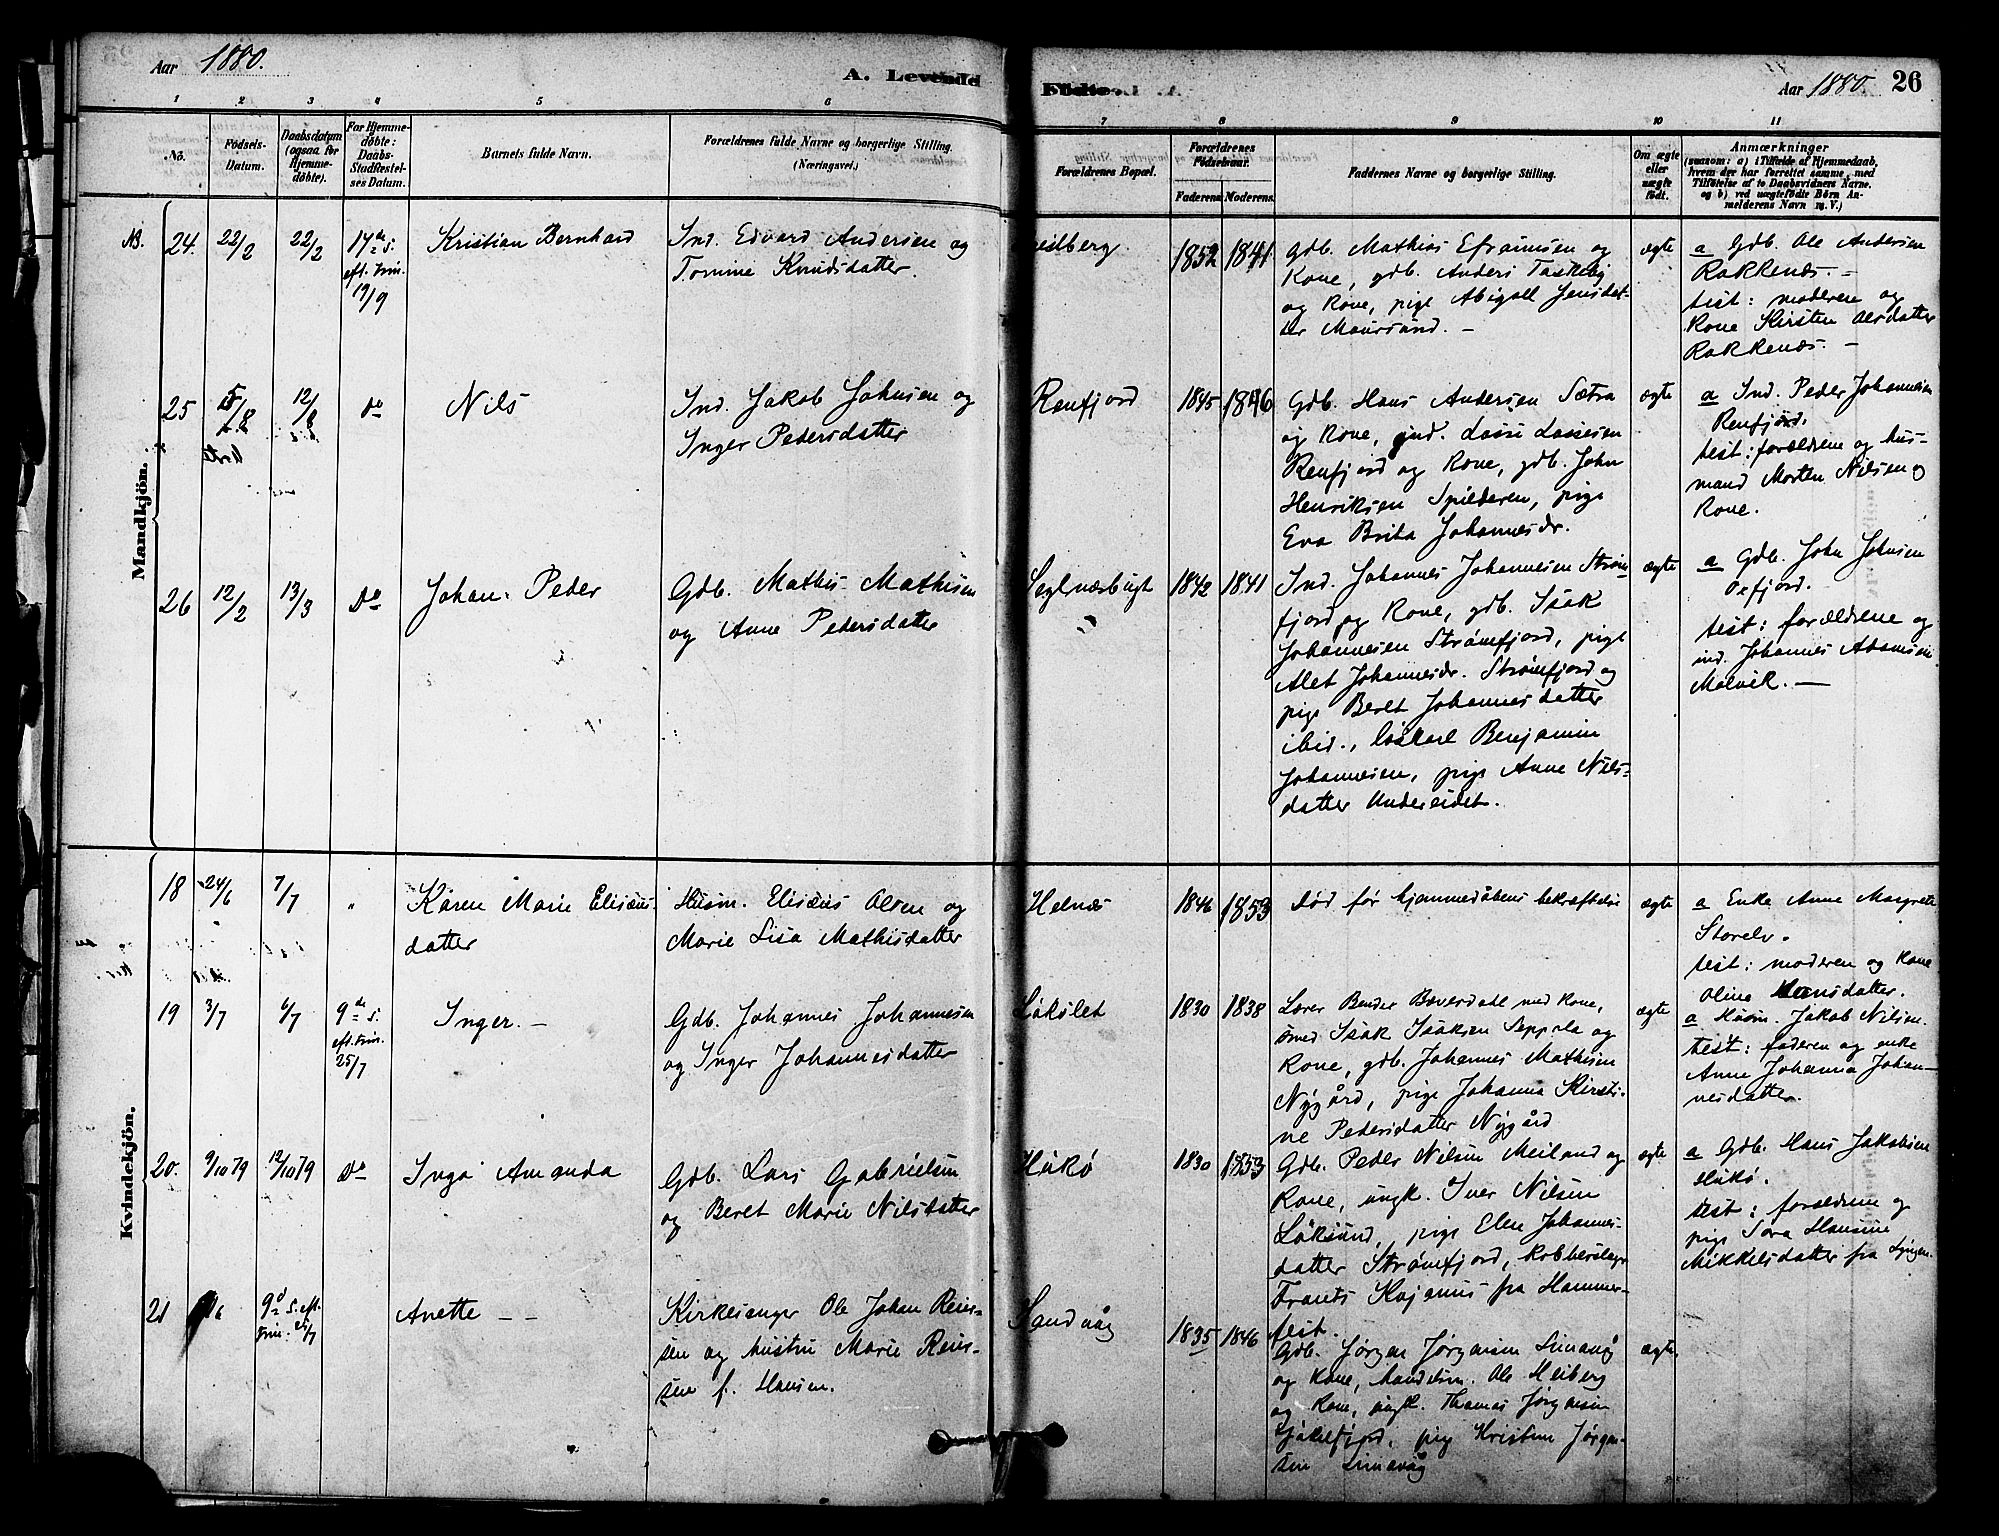 Aar 1880.
A. Levende
Fødte.
Aar 1880.
26
1 2 3 4 5 6 7 8 9 10 11
No.
Fødsels-
Datum.
Daabsdatum
(ogsaa for
Hjemme-
døbte).
For Hjemme-
døbte:
Daabs-
Stadfæstel-
ses Datum.
Barnets fulde Navn.
Forældrenes fulde Navne og borgerlige Stilling.
(Næringsvei.)
Forældrenes Bopæl.
Forældrenes
Fødselsaar.
Faderens. Moderens.
Faddernes Navne og borgerlige Stilling.
Om ægte
eller
uægte
født.
Anmærkninger
(saasom: a) i Tilfælde af Hjemmedaab,
hvem der har forrettet samme, med
Tilføielse af to Daabsvidners Navne,
og b) ved uægtefødte Børn An-
melderens Navn m. V.)
Mandkjön.
24. 22/2 22/2
17de s.
eft. trin.
19/9
Kristian Bernhard
Ind. Edvard Andersen og
Tomine Knudsdatter.
1852 1841
Gdb. Mathis Efraimsen og
Kone, gdb. Anders Taskeby
og Kone, pige Abigael Jensdat-
ter Maursund. –
ægte
a Gdb. Ole Andersen
Rakkenæs. –
test: moderen og
Kone Kirsten Olsdatter
Rakkenæs. –
25 5/8 12/8 do
Nils
Ind. Jakob Johnsen og
Inger Pedersdatter
Renfjord
1845 1846
Gdb. Hans Andersen Sætra
og Kone, ind. Lasse Lassesen
Renfjord og Kone, gdb. John
Henriksen Spilderen, pige
Eva Brita Johannesdr.
ægte
a Ind. Peder Johannesen
Renfjord.
test: forældrene og hus-
mand Morten Nilsen og
Kone.
26 12/2 13/3 Do
Johan Peder
Gdb. Mathis Mathisen
og Anne Pedersdatter
Seglnæsbugt
1842 1841
Ind. Johannes Johannesen Strøm-
fjord og Kone, gdb. Isak
Johannesen Strømfjord, pige
Alet Johannesdr. Strømfjord og
pige Beret Johannesdatter
ibid., løskarl Benjamin
Johannesen, pige Anne Nils-
datter Undereidet.
ægte
a Gdb. John Johnsen
Oxfjord.
test: forældrene og
ind. Johannes Adamsen
Malvik. –
Kvindekjön.
18 24/6 7/7 "
Karen Marie Elisæus-
datter
Husm. Elisæus Olsen og
Marie Lisa Mathisdatter
Helnæs
1846 1853
Død før hjemmedåbens bekræftelse
ægte
a Enke Anne Margrete
Storelv.
test: moderen og kone
Olina Hansdatter.
19 3/7 6/7
9de s.
eft. trin.
25/7
Inger. –
Gdb. Johannes Johannesen
og Inger Johannesdatter
1830 1838
Lærer Bender Bæverdahl med kone,
smed Isak Isaksen Seppola og
Kone, gdb. Johannes Mathisen
Nygård, pige Johanna Kirsti-
ne Pedersdatter Nygård
ægte
a Husm. Jakob Nilsen.
test: faderen og enke
Anne Johanna Johan-
nesdatter.
20. 9/10 79 12/10 79 Do
Inga Amanda
Gdb. Lars Gabrielsen
og Beret Marie Nilsdatter
Hukø
1830 1853
Gdb. Peder Nilsen Meiland og
Kone, ungk. Iver Nilsen
Løksund, pige Elen Johannes-
datter Strømfjord, kobberslager
Frants Kajanus fra Hammer-
fest.
ægte
a Gdb. Hans Jakobsen
Hukø.
test: forældrene og
pige Sara Hansine
Mikkelsdatter fra Lyngen.
21 /6
9d s. eft.
trin. 25/7
Anette – –
Kirkesanger Ole Johan Reier-
sen og hustru Marie Reier-
sen f. Hansen.
Sandvåg
1835 1846
Gdb. Jørgen Jørgensen Simavåg
og Kone, handelsm. Ole Heiberg
og Kone, ungk. Thomas Jørgensen
Jøkelfjord, pige Kristine Jørgen-
sen Simavåg
ægte.